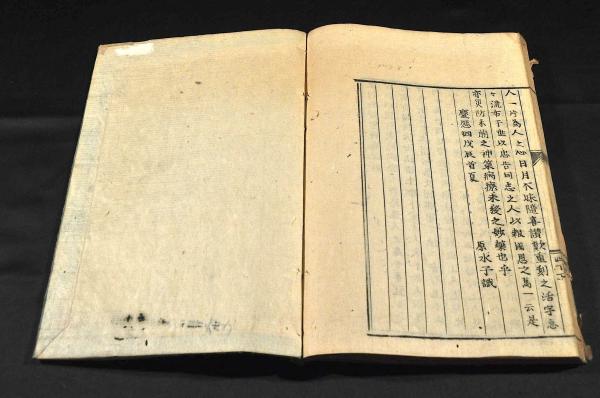 人一片爲人之心日月不昧隨喜讃歎重刻之活字
流布于世以忠告同志之人以報國恩之萬一云是
亦災防未萠之神策病療未發之妙藥也乎
慶應四戊辰首夏
原水子識